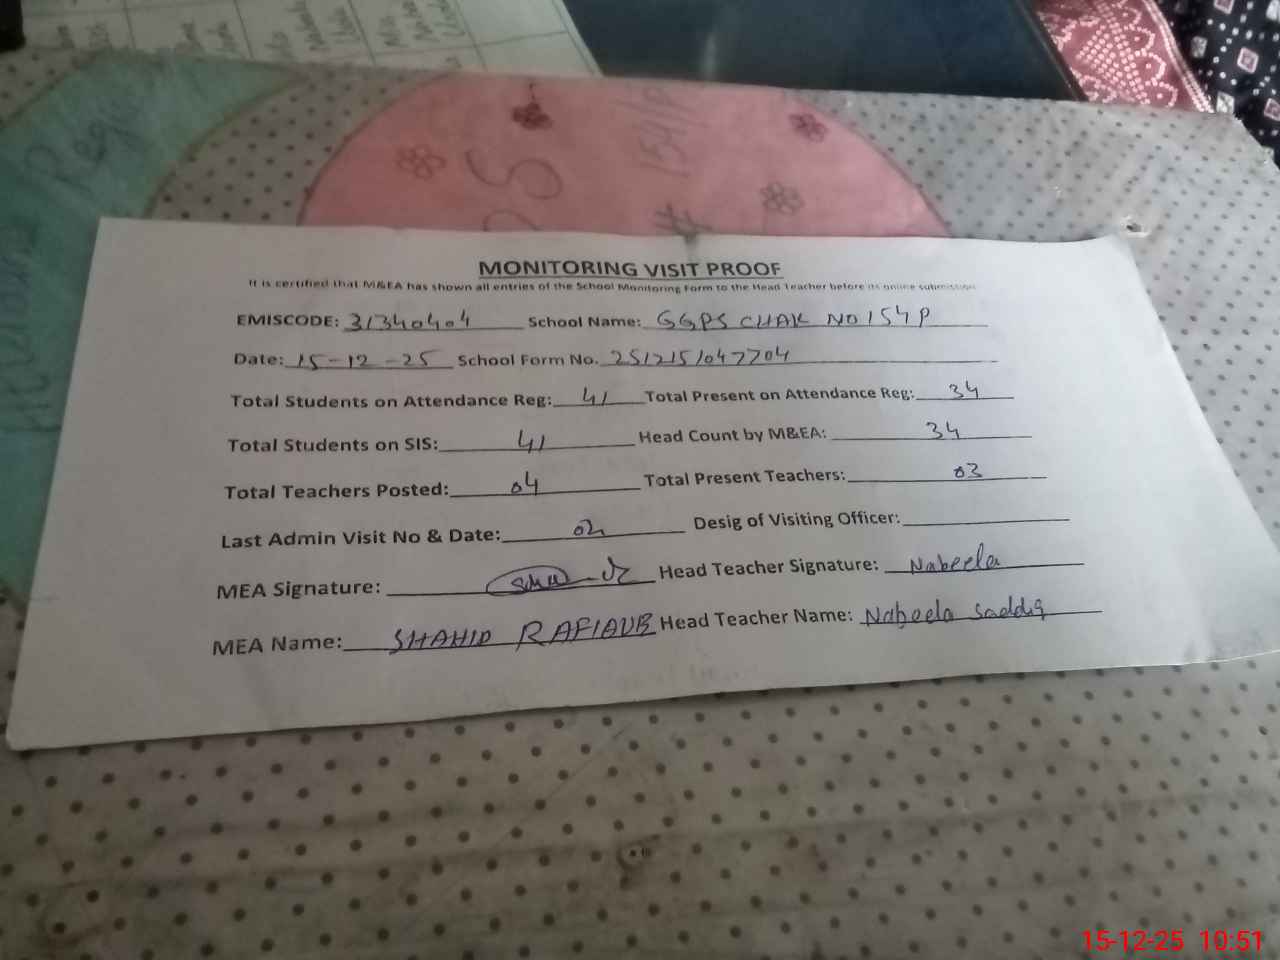 MONITORING VISIT PROOF
It is certified that M&EA has shown all entries of the School Monitoring Form to the Head Teacher before its online submission
EMISCODE: 31340404 School Name: GGPS CHAK NO 154 P
Date: 15-12-25 School Form No. 2512151047704
Total Students on Attendance Reg: 41 Total Present on Attendance Reg: 34
Total Students on SIS: 41 Head Count by M&EA: 34
Total Teachers Posted: 04 Total Present Teachers: 03
Last Admin Visit No & Date: Desig of Visiting Officer:
MEA Signature: Head Teacher Signature: Nabeela
MEA Name: SHAHID Head Teacher Name: Nabeela
15-12-25 10:51